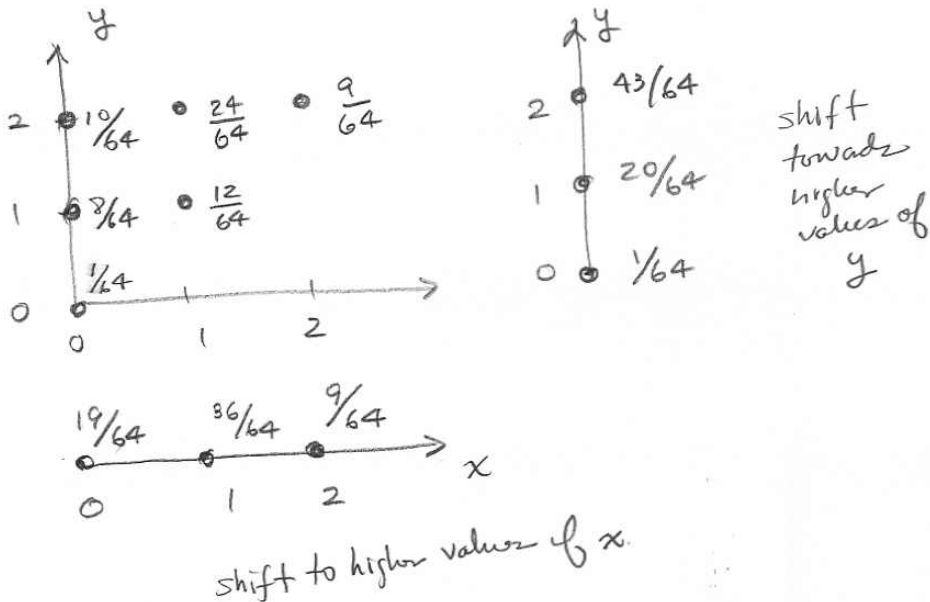 y
2 10/64 24/64 9/64
1 8/64 12/64
1/64
0
0 1 2
y
2 43/64
1 20/64
0 1/64
shift
towads
higher
values of
y
19/64 36/64 9/64
x
0 1 2
shift to higher values of x.